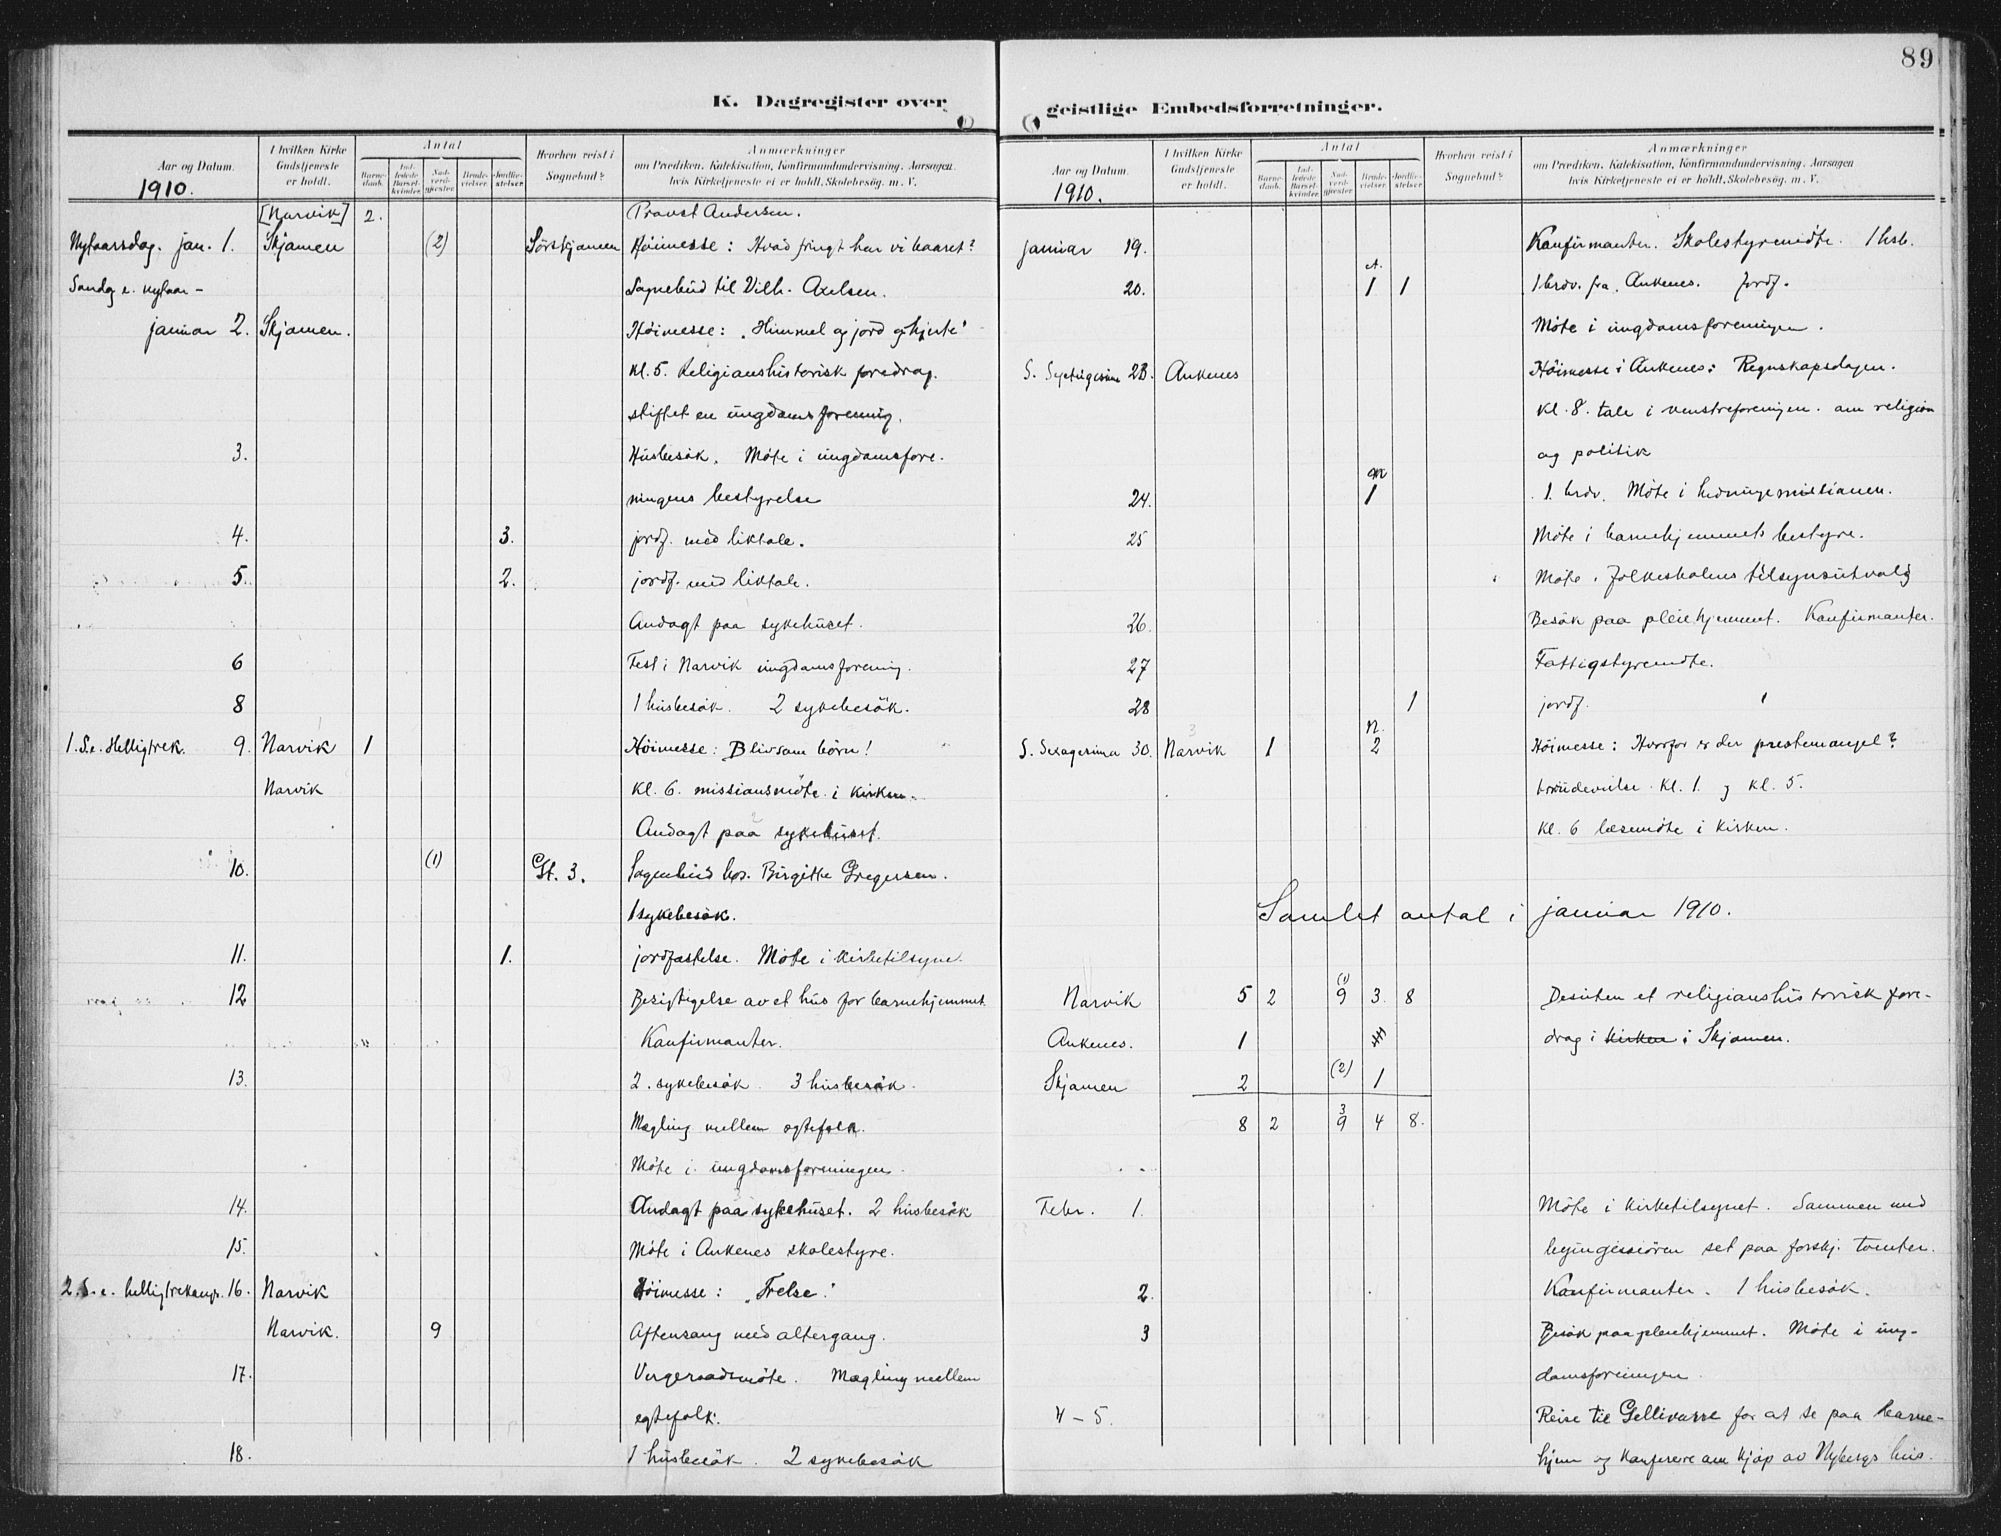 89
K. Dagregister over
Aar og Datum.
1910.
I hvilken Kirke Gudstjeneste er holdt.
Antal
Barne-daab.
Ind-ledede Barsel-kvinder.
Nad-verd-gjester.
Brude-vielser.
Jordfæ-stelser.
Hvorhen reist i Sognebud?
Anmærkninger
om Prædiken, Katekisation, Konfirmandundervisning, Aarsagen,
hvis Kirketjeneste ei er holdt, Skolebesøg, m. V.
[Narvik] 2. Provst Andersen.
Nytaarsdag. jan. 1. Skjomen (2) Sörskjomen Höimesse: Hvad frugt har vi baaret?
Söndag e. nytaar – Sognebud til Vilh. Axelsen.
januar 2. Skjomen. Höimesse: „Himmel og jord og hjerte"
Kl. 5. Religionshistorisk foredrag.
stiftet en ungdomsforening.
3. Husbesök. Möte i ungdomsfore-
ningens bestyrelse
4. 3. jordf. med liktale.
5. 2. jordf. med liktale.
Andagt paa sykehuset.
6 Fest i Narvik ungdomsforening.
8 1 husbesök. 2 sykebesök.
1. S. e. Helligtrek. 9. Narvik 1 Höimesse: Bliv som börn!
Narvik Kl. 6. missionsmöte i kirken.
Andagt paa sykehuset.
10. (1) Gt. 3. Sognebud hos Birgitte Gregersen.
1 sykebesök.
11. 1. jordfæstelse. Möte i kirketilsyne.
12 Besigtigelse av et hus for barnehjemmet
Konfirmanter.
13. 2. sykebesök. 3 husbesök.
Mægling mellem egtefolk.
Möte i ungdomsforeningen.
14. Andagt paa sykehuset. 2 husbesök
15. Möte i Ankenes skolestyre.
2. S. e. helligtrekonger 16. Narvik Höimesse: „Frelse."
Narvik. 9 Aftensang med altergang.
17. Vergeraadsmöte. Mægling mellem
egtefolk.
18. 1 husbesök. 2 sykebesök
geistlige Embedsforretninger.
Aar og Datum.
1910.
I hvilken Kirke Gudstjeneste er holdt.
Antal
Barne-daab.
Ind-ledede Barsel-kvinder.
Nad-verd-gjester.
Brude-vielser.
Jordfæ-stelser.
Hvorhen reist i Sognebud?
Anmærkninger
om Prædiken, Katekisation, Konfirmandundervisning, Aarsagen
hvis Kirketjeneste ei er holdt, Skolebesøg, m. V.
januar 19. Konfirmanter. Skolestyremöte. 1 hsb.
20. A. 1 1 1 brdv. fra Ankenes. Jordf.
Möte i ungdomsforeningen.
S. Septuagesima 23. Ankenes Höimesse i Ankenes: Regnskapsdagen.
Kl. 8. tale i venstreforeningen om religion
og politik
24. 1 1 brdv. Möte i hedningemissionen.
25 Möte i barnehjemmets bestyre.
Möte i folkeskolens tilsynsutvalg
26. Besök paa pleiehjemmet. Konfirmanter.
27 Fattigstyremöte.
28 1 jordf. 1
S. Sexagesima 30. Narvik 1 N. 2 Höimesse: Hvorfor er der prestemangel?
brudevielse Kl. 1. og kl. 5.
Kl. 6 læsemöte i kirken.
Samlet antal i januar 1910.
Narvik 5 2 (1) 9 3. 8 Desuten et religionshistorisk fore-
Ankenes. 1 drag i kirken i Skjomen.
Skjomen 2 (2) 1
8 2 3 9 4 8.
Febr. 1. Möte i kirketilsynet. Sammen med
byingeniören set paa forskj. tomter.
2. Konfirmanter. 1 husbesök.
3 Besök paa pleiehjemmet. Möte i ung-
domsforeningen
4 – 5. Reise til Gellivarre for at se paa barne-
hjem og konferere om kjöp av Nybergs hus.